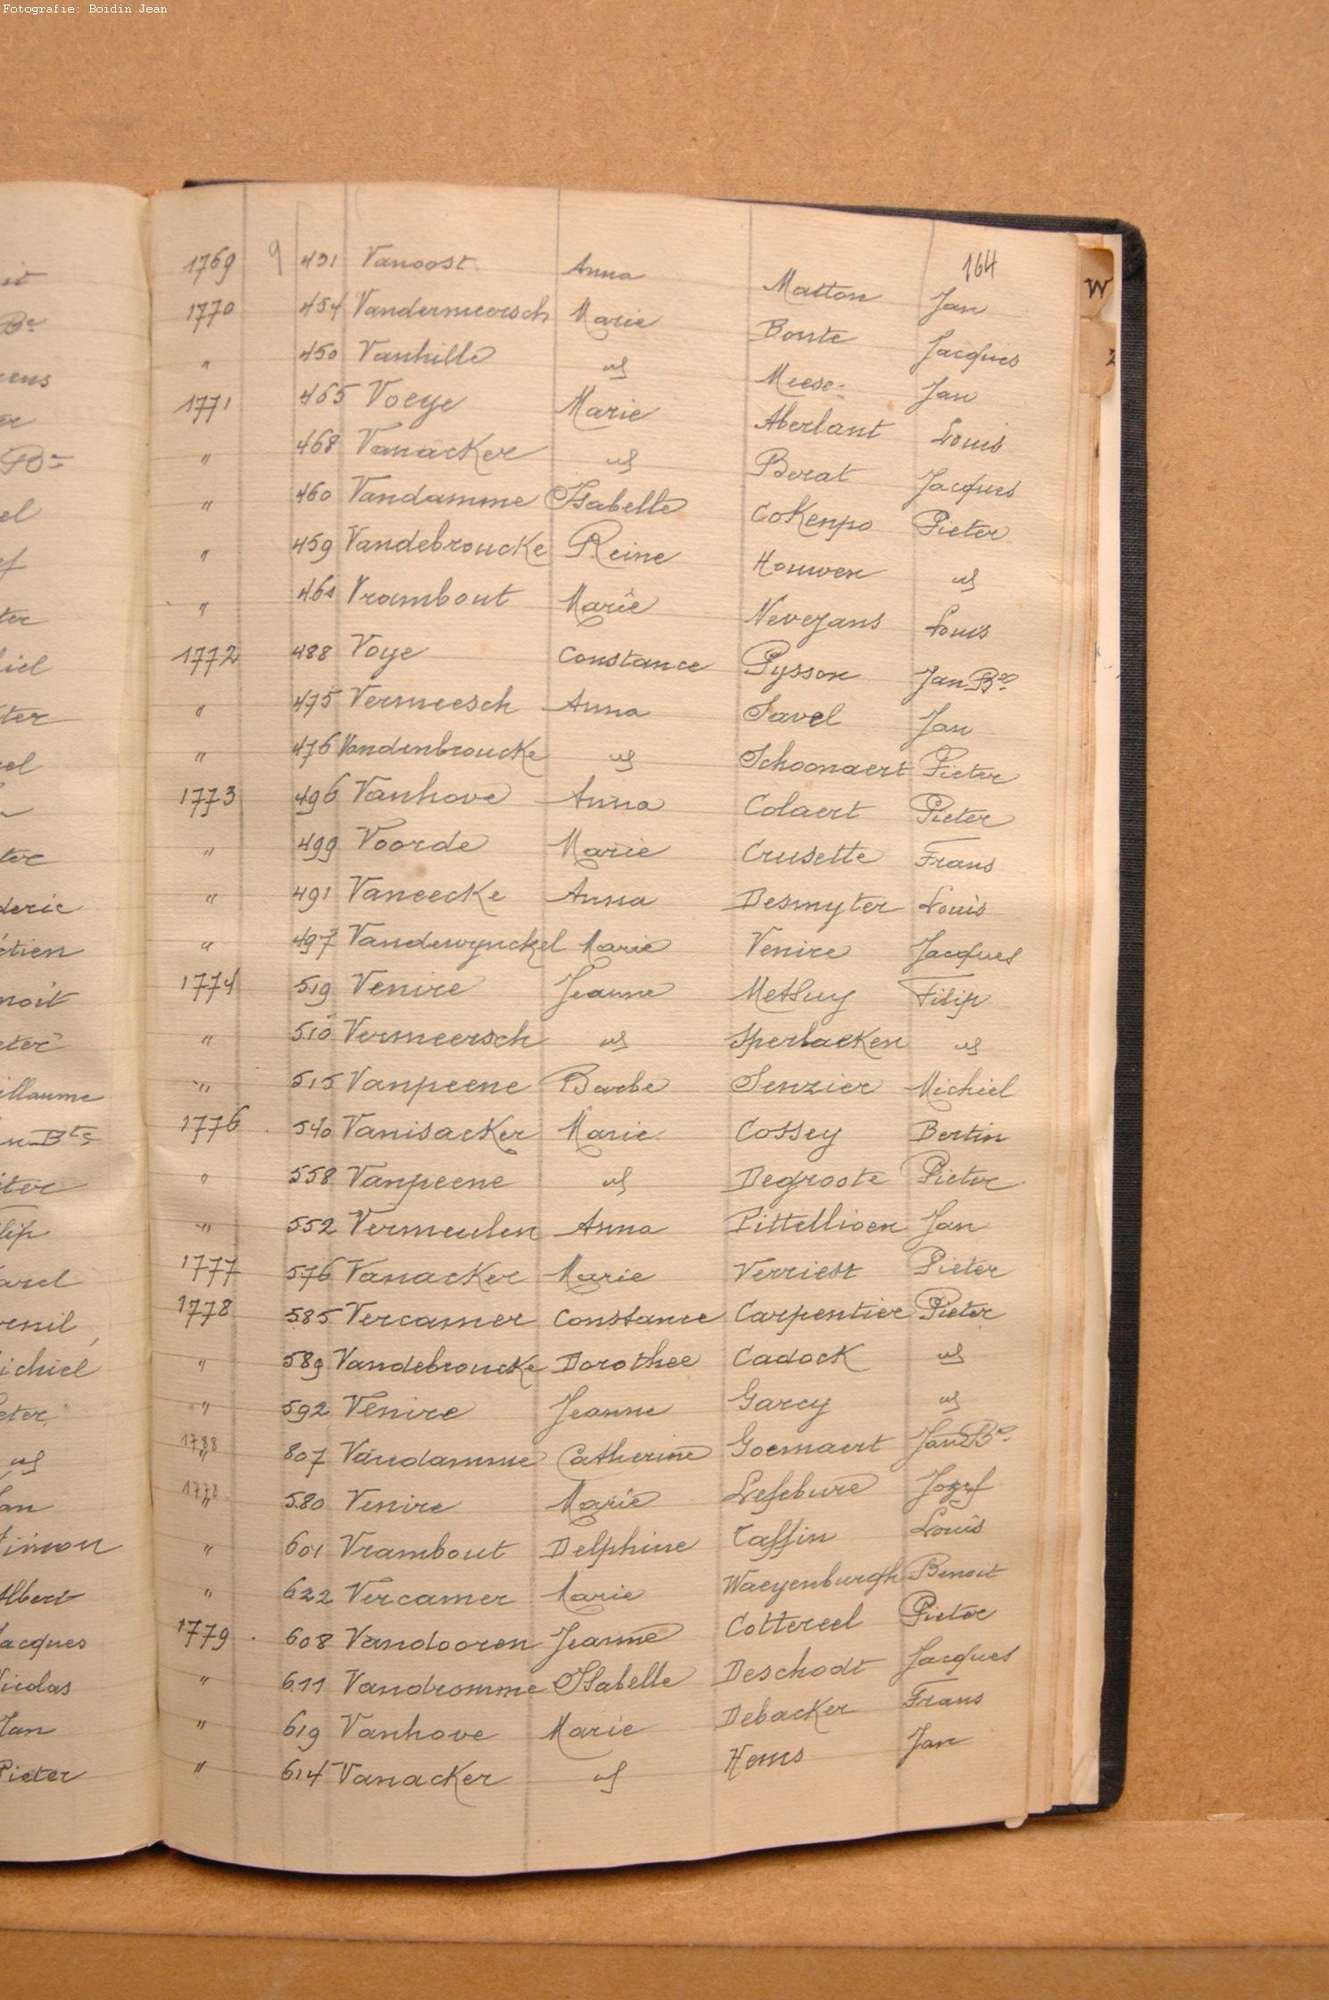 Fotografie: Boidin Jean
164
1769 9 431 Vanoost Anna Matton Jan
1770 454 Vandermeersch Marie Bonte Jacques
" 450 Vanhille id Meese Jan
1771 465 Voeye Marie Aberlant Louis
" 468 Vanacker id Berat Jacques
" 460 Vandamme Isabelle Cokenpo Pieter
" 459 Vandebroucke Reine Houwen id
" 461 Vrambout Marie Nevejans Louis
1772 488 Voye Constance Pysson Jan Bte
" 475 Vermeesch Anna Savel Jan
" 476 Vandenbroucke id Schoonaert Pieter
1773 496 Vanhove Anna Colaert Pieter
" 499 Voorde Marie Crusette Frans
" 491 Vaneecke Anna Desmyter Louis
" 497 Vandewynckel Marie Venire Jacques
1774 519 Venire Jeanne Methuy Filip
" 510 Vermeersch id Sperlaeken id
" 515 Vanpeene Barbe Senzier Michiel
1776 540 Vanisacker Marie Cossey Bertin
" 558 Vanpeene id Degroote Pieter
" 552 Vermeulen Anna Pittellioen Jan
1777 576 Vanacker Marie Verriest Pieter
1778 585 Vercamer Constance Carpentier Pieter
" 589 Vandebroucke Dorothee Cadock id
" 592 Venire Jeanne Garcy id
1788 " 807 Vandamme Catherine Goemaert Jan Bte
1778 " 580 Venire Marie Lefebure Jozef
" 601 Vrambout Delphine Taffin Louis
" 622 Vercamer Marie Waeyenburgh Benoit
1779 608 Vandooren Jeanne Cottereel Pieter
" 611 Vandromme Isabelle Deschodt Jacques
" 619 Vanhove Marie Debacker Frans
" 614 Vanacker id Hems Jan
W
Z